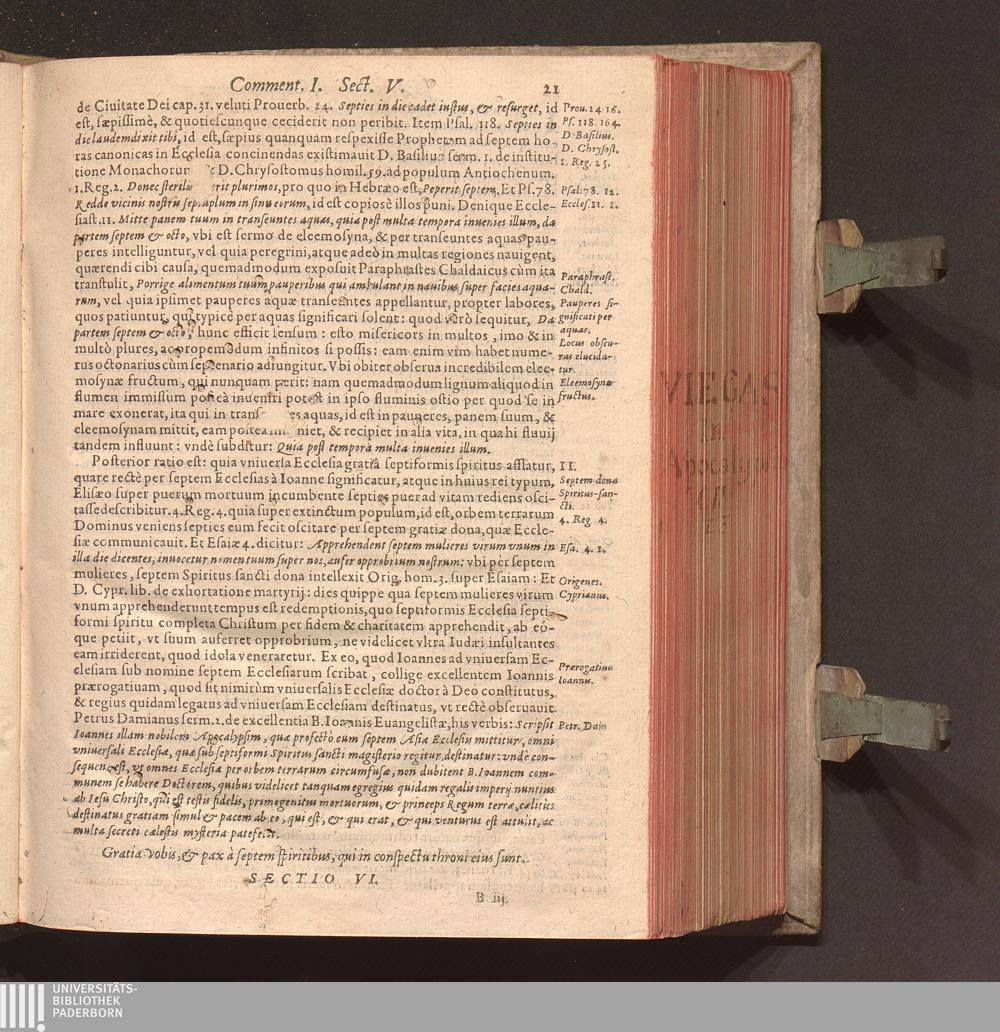 Comment. I. Sect. V. 21
de Ciuitate Dei cap. 31. veluti Prouerb. 24. Septies in die cadet iustus, & resurget, id
est, sæpissimè, & quotiescunque ceciderit non peribit. Item Psal. 118. Septies in
die laudem dixit tibi, id est, sæpius quanquam respexisse Prophetam ad septem ho-
ras canonicas in Ecclesia concinendas existimauit D. Basilius serm. 1. de institu-
tione Monachorum D. Chrysostomus homil. 59. ad populum Antiochenum.
1. Reg. 2. Donec sterilis rit plurimos, pro quo in Hebræo est, Peperit septem. Et Ps. 78.
Redde vicinis nostris septuplum in sinu eorum, id est copiosè illos puni. Denique Eccle-
siast. 11. Mitte panem tuum in transeuntes aquas, quia post multa tempora inuenies illum, da
partem septem & octo, vbi est sermo de eleemosyna, & per transeuntes aquas pau-
peres intelliguntur, vel quia peregrini, atque adeò in multas regiones nauigent,
quærendi cibi causa, quemadmodum exposuit Paraphrastes Chaldaicus cùm ita
transtulit, Porrige alimentum tuum pauperibus qui ambulant in nauibus super facies aqua-
rum, vel quia ipsimet pauperes aquæ transeuntes appellantur, propter labores,
quos patiuntur, qui typicè per aquas significari solent: quod verò sequitur, Da
partem septem & octo, hunc efficit sensum: esto misericors in multos, imo & in
multò plures, ac propemodum infinitos si possis: eam enim vim habet nume-
rus octonarius cùm septenario adiungitur. Vbi obiter obserua incredibilem elee-
mosynæ fructum, qui nunquam perit: nam quemadmodum lignum aliquod in
flumen immissum posteà inueniri potest in ipso fluminis ostio per quod se in
mare exonerat, ita qui in trans es aquas, id est in pauperes, panem suum, &
eleemosynam mittit, eam postea niet, & recipiet in alia vita, in qua hi fluuij
tandem influunt: vndè subditur: Quia post tempora multa inuenies illum.
Posterior ratio est: quia vniuersa Ecclesia gratia septiformis spiritus afflatur,
quare rectè per septem Ecclesias à Ioanne significatur, atque in huius rei typum,
Elisæo super puerum mortuum incumbente septies puer ad vitam rediens osci-
tasse describitur. 4. Reg. 4. quia super extinctum populum, id est, orbem terrarum
Dominus veniens septies eum fecit oscitare per septem gratiæ dona, quæ Eccle-
siæ communicauit. Et Esaiæ 4. dicitur: Apprehendent septem mulieres virum vnum in
illa die dicentes, inuocetur nomen tuum super nos, aufer opprobrium nostrum: vbi per septem
mulieres, septem Spiritus sancti dona intellexit Orig. hom. 3. super Esaiam: Et
D. Cypr. lib. de exhortatione martyrij: dies quippe qua septem mulieres virum
vnum apprehenderunt tempus est redemptionis, quo septiformis Ecclesia septi-
formi spiritu completa Christum per fidem & charitatem apprehendit, ab eó-
que petiit, vt suum auferret opprobrium, ne videlicet vltra Iudæi insultantes
eam irriderent, quod idola veneraretur. Ex eo, quod Ioannes ad vniuersam Ec-
clesiam sub nomine septem Ecclesiarum scribat, collige excellentem Ioannis
prærogatiuam, quod sit nimirùm vniuersalis Ecclesiæ doctor à Deo constitutus,
& regius quidam legatus ad vniuersam Ecclesiam destinatus, vt rectè obseruauit
Petrus Damianus serm. 2. de excellentia B. Ioannis Euangelistæ, his verbis: Scripsit
Ioannes illam nobilem Apocalypsim, quæ profectò cum septem Asiæ Ecclesiis mittitur, omni
vniuersali Ecclesiæ, quæ sub septiformi Spiritus sancti magisterio regitur, destinatur: vndè con-
sequens est, vt omnes Ecclesiæ per orbem terrarum circumfusæ, non dubitent B. Ioannem com-
munem se habere Doctorem, quibus videlicet tanquam egregius quidam regalis imperij nuntius
ab Iesu Christo, qui est testis fidelis, primogenitus mortuorum, & princeps Regum terræ, cælitus
destinatus gratiam simul & pacem ab eo, qui est, & qui erat, & qui venturus est attulit, ac
multa secreti cælestis mysteria patefecit.
Gratia vobis, & pax à septem spiritibus, qui in conspectu throni eius sunt.
SECTIO VI.
B iij.
Prou. 24 16.
Ps. 118. 164.
D. Basilius.
D. Chrysost.
1. Reg. 25.
Psal. 78. 12.
Eccles. 11. 1.
Paraphrast.
Chald.
Pauperes si-
gnificati per
aquas.
Locus obscu-
rus elucida-
tur.
Eleemosynæ
fructus.
II.
Septem dona
Spiritus san-
cti.
4. Reg 4.
Esa. 4. 1.
Origenes.
Cyprianus.
Prærogatiua
Ioannis.
Petr. Dam
VIEGAS
In
UNIVERSITÄTS-
BIBLIOTHEK
PADERBORN